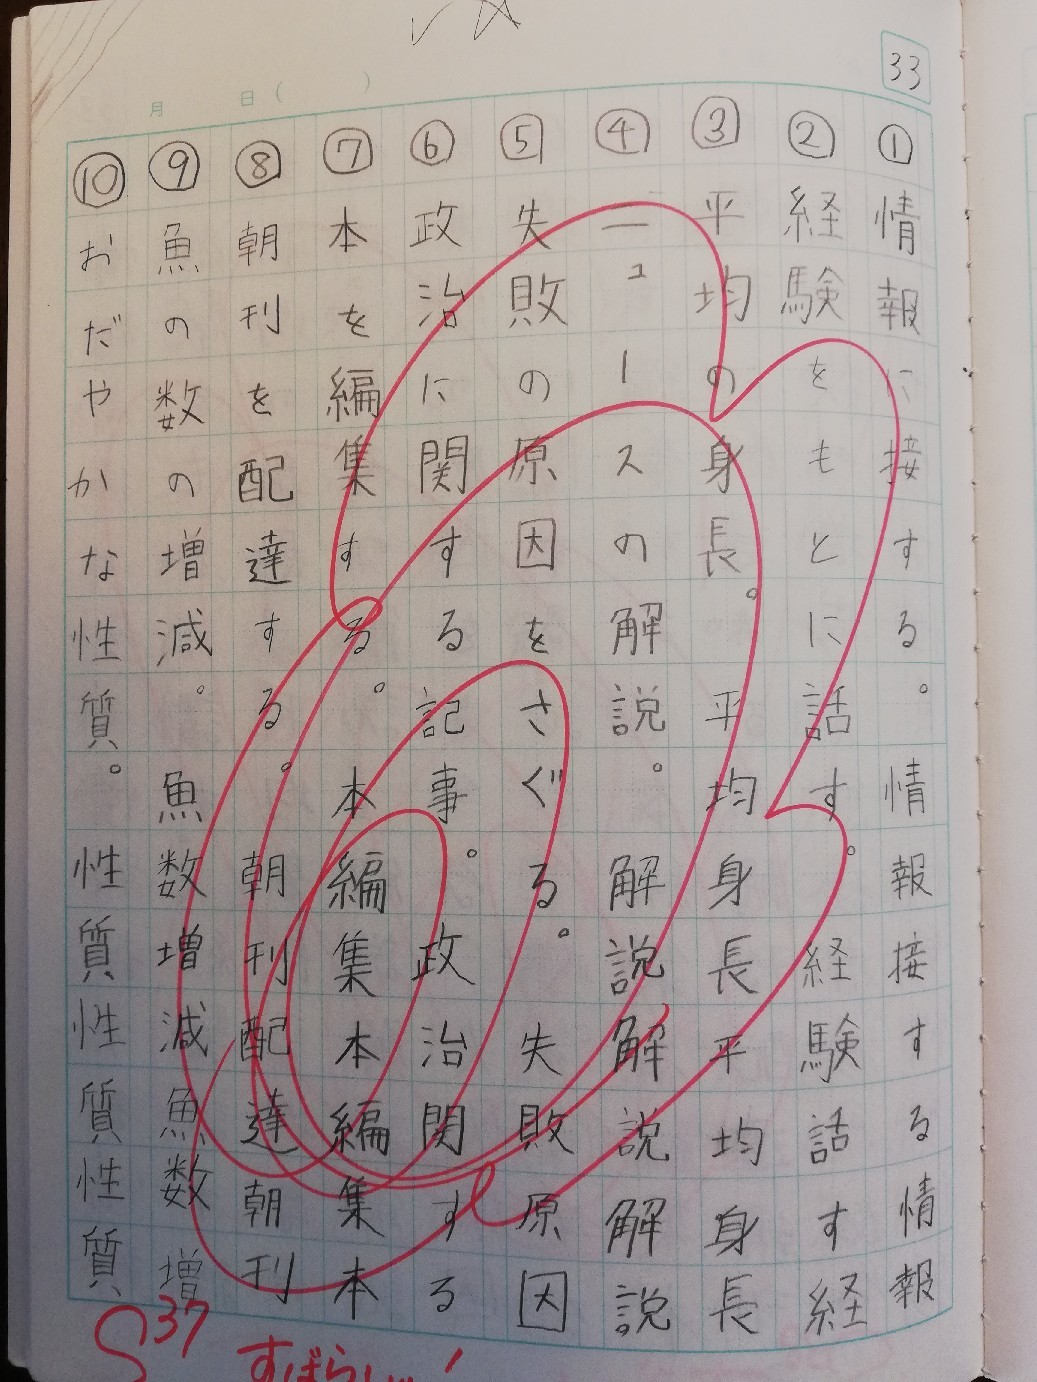 33
月 日( )
①情報に接する。情報接する情報
②経験をもとに話す。経験話す経
③平均の身長。平均身長平均身長
④ニュースの解説。解説解説解説
⑤失敗の原因をさぐる。失敗原因
⑥政治に関する記事。政治関する
⑦本を編集する。本編集本編集本
⑧朝刊を配達する。朝刊配達朝刊
⑨魚の数の増減。魚数増減魚数増
⑩おだやかな性質。性質性質性質
S37
すばらしい!